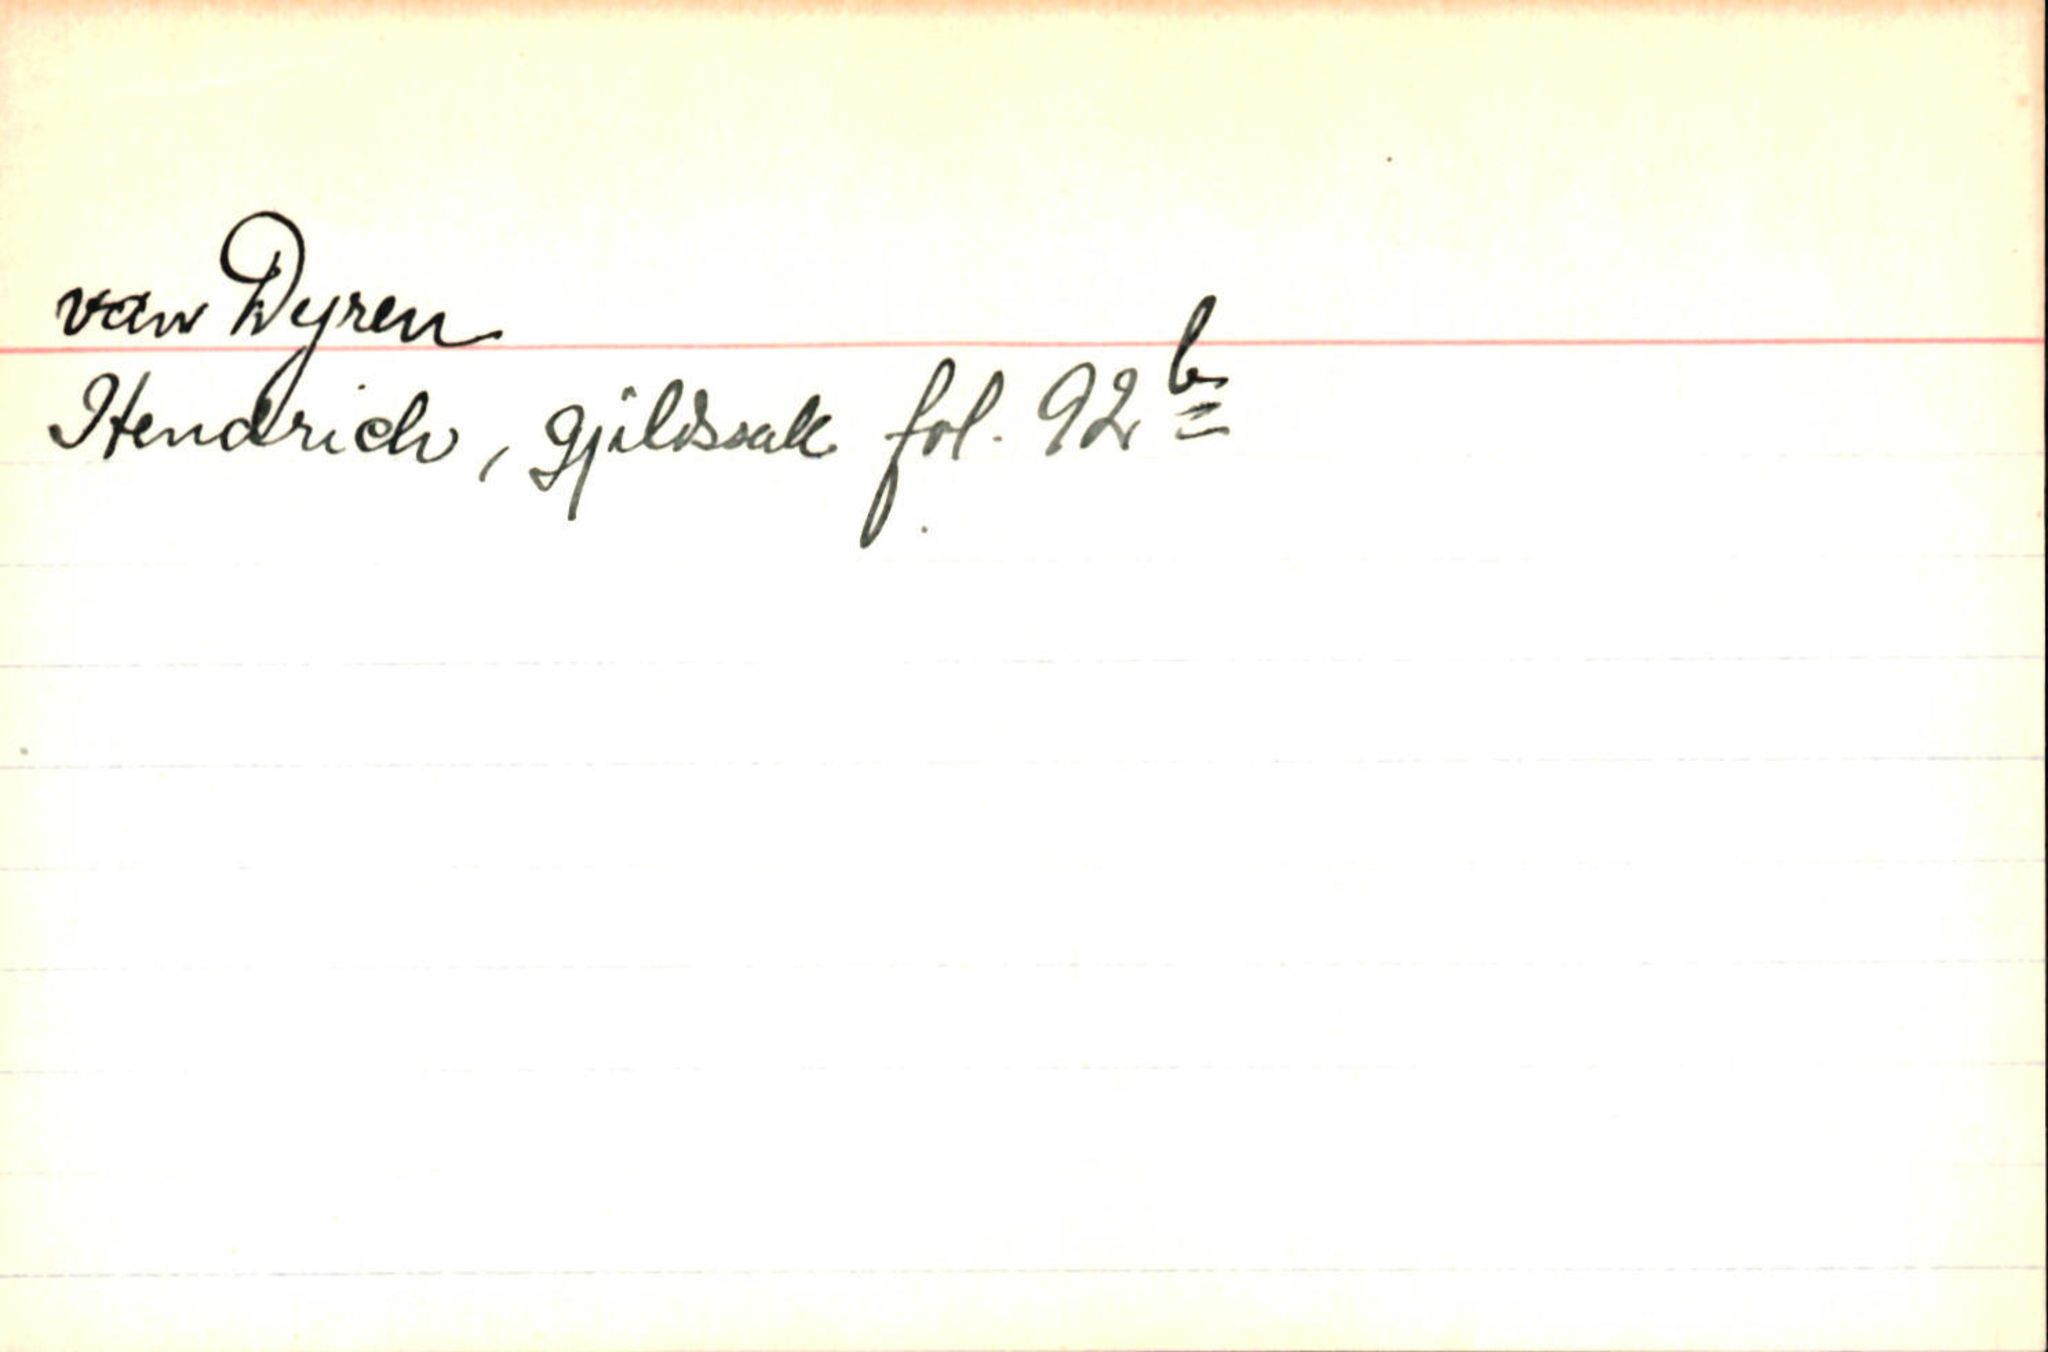 van Dyren
Hendrich, gjeldssak fol. 92 b